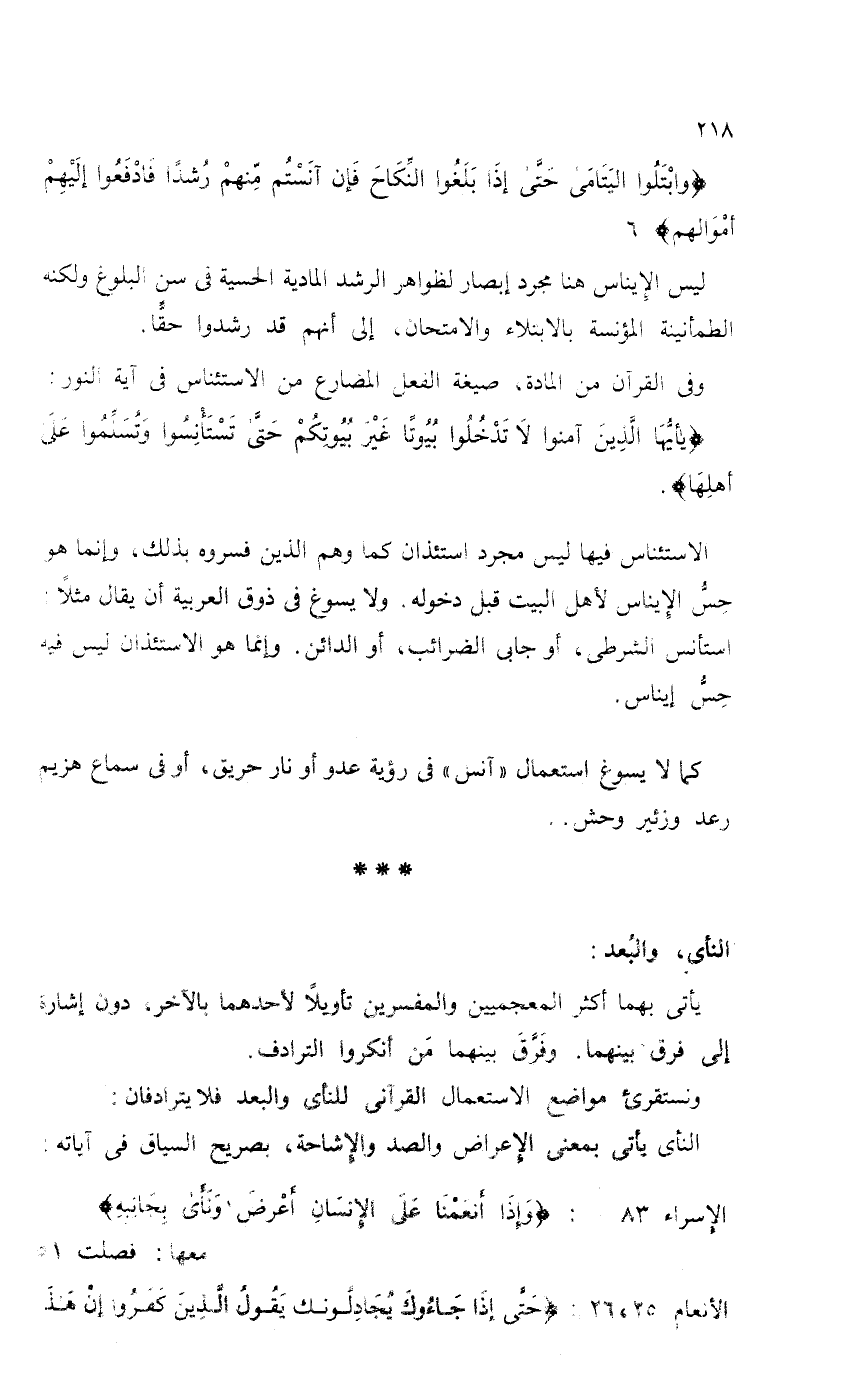 ٢١٨
﴿وابْتَلُوا اليَتَامَىٰ حَتَّىٰ إِذَا بَلَغُوا النِّكَاحَ فَإن آنَسْتُم مِّنهمْ رُشدًا فَادْفَعُوا إلَيْهِمْ
أمْوَالهم﴾ ٦
ليس الإيناس هنا مجرد إبصار لظواهر الرشد المادية الحسية فى سن البلوغ ولكنه
الطمأنينة المؤنسة بالابتلاء والامتحان، إلى أنهم قد رشدوا حقًّا.
وفى القرآن من المادة، صيغة الفعل المضارع من الاستئناس فى آية النور:
﴿يأيُّهَا الَّذِينَ آمنوا لاَ تَدْخُلُوا بُيُوتًا غَيْرَ بُيُوتِكُمْ حَتَّىٰ تَسْتَأْنِسُوا وَتُسَلِّمُوا عَلَىٰ
أهلِهَا﴾.
الاستئناس فيها ليس مجرد استئذان كما وهم الذين فسروه بذلك، وإنما هو
حِسُّ الإيناس لأهل البيت قبل دخوله. ولا يسوغ فى ذوق العربية أن يقال مثلاً:
استأنس الشرطى، أو جابى الضرائب، أو الدائن. وإنما هو الاستئذان ليس فيه
حِسُّ إيناس.
كما لا يسوغ استعمال «آنس» فى رؤية عدو أو نار حريق، أو فى سماع هزيم
رعد وزئير وحش..
***
النأى، والبُعد:
يأتى بهما أكثر المعجميين والمفسرين تأويلاً لأحدهما بالآخر، دون إشارة
إلى فرق بينهما. وفَرَّقَ بينهما مَن أنكروا الترادف.
ونستقرئ مواضع الاستعمال القرآنى للنأى والبعد فلا يترادفان:
النأى يأتى بمعنى الإعراض والصد والإشاحة، بصريح السياق فى آياته:
الإسراء ٨٣ : ﴿وَإِذَا أَنعَمْنَا عَلَى الإنسَانِ أَعْرضَ وَنَأَىٰ بِجَانِبِهِ﴾
معها: فصلت ٥١
الأنعام ٢٥، ٢٦ : ﴿حَتَّى إذَا جَاءُوكَ يُجَادِلُونك يَقُولُ الَّذِينَ كَفَرُوا إنْ هَذَا